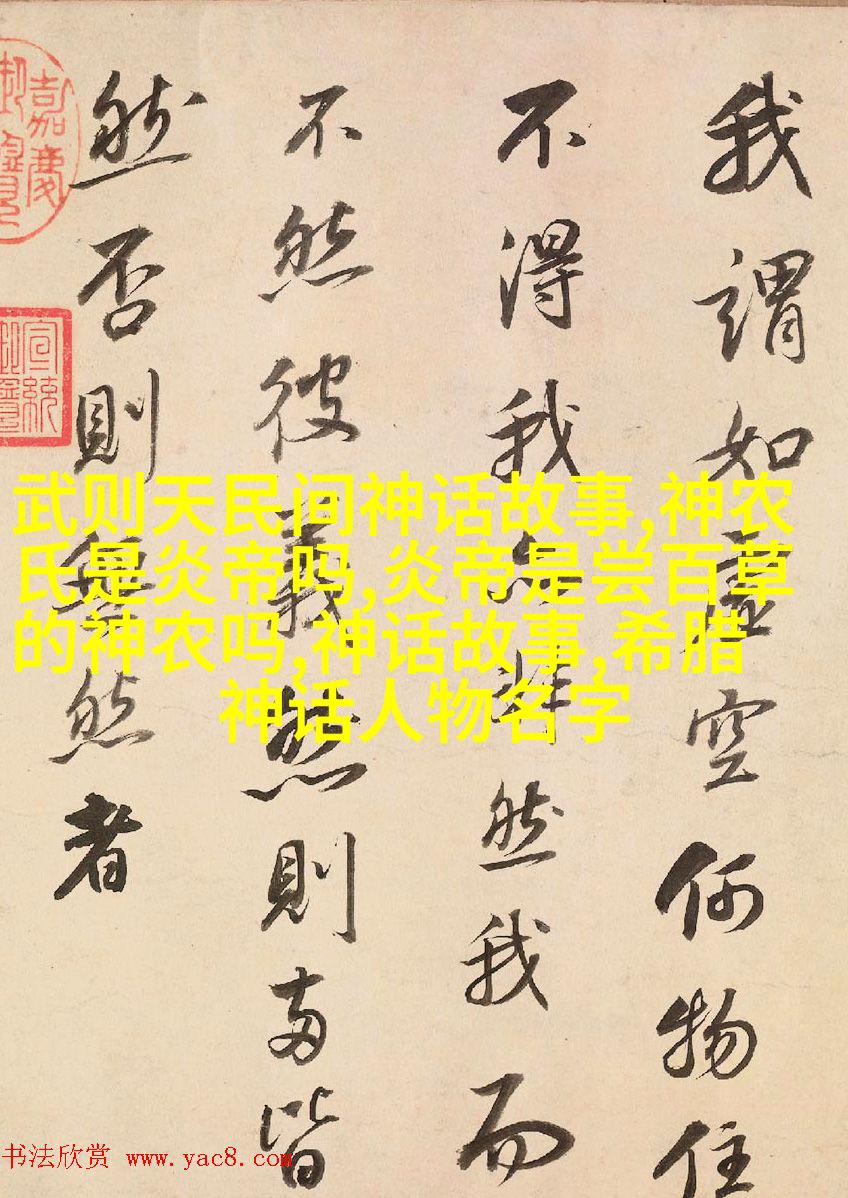 我謂如虛空何物住
不得我然我而
不然彼義然則兩皆
然否則無然者
嘉慶
宣統
武则天民间神话故事,神农
氏是炎帝吗,炎帝是尝百草
的神农吗,神话故事,希腊
神话人物名字
书法欣赏 www.yac8.com